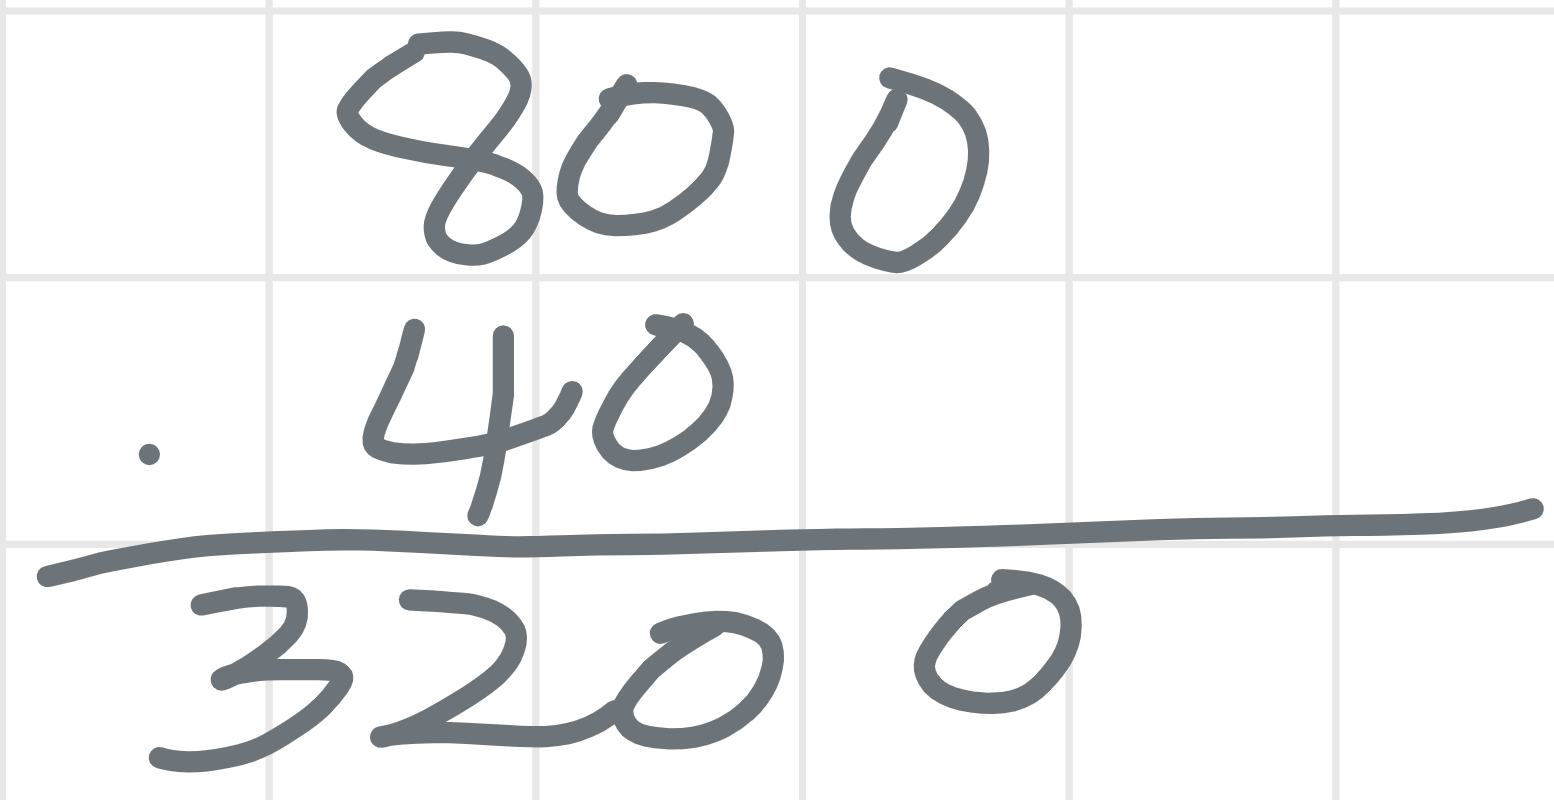 800
. 40
3200